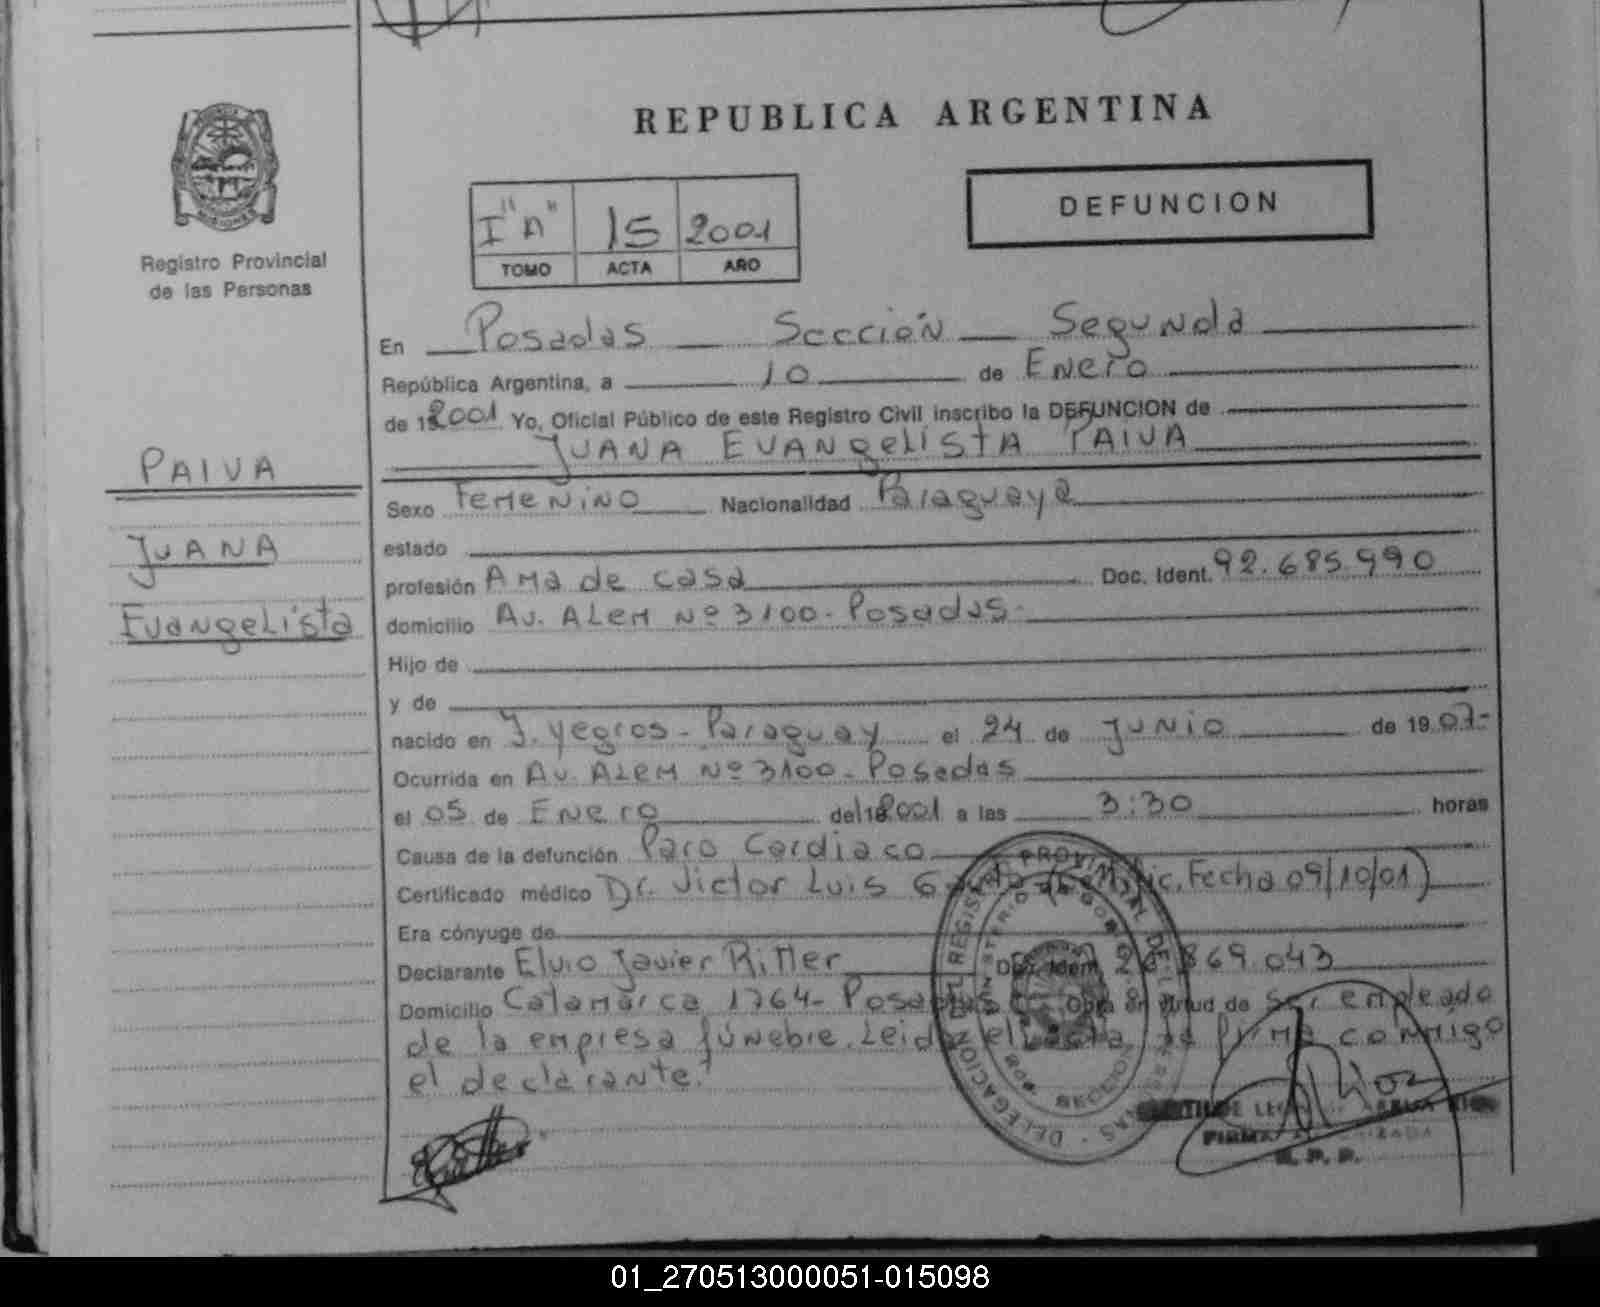 REPUBLICA ARGENTINA
I "A" 15 2001
TOMO ACTA AÑO
DEFUNCION
Registro Provincial
de las Personas
PAIVA
JUANA
Evangelista
En Posadas Sección Segunda
República Argentina, a 10 de Enero
de 2001 Yo, Oficial Público de este Registro Civil inscribo la DEFUNCION de
JUANA EVANgelistA PAIVA
Sexo Femenino Nacionalidad Paraguaya
estado
profesión Ama de casa Doc. Ident. 92.685.990
domicilio Av. ALEM Nº 3100 - Posadas-
Hijo de
y de
nacido en J. Yegros - Paraguay el 24 de Junio de 1907-
Ocurrida en Av. ALEM Nº 3100 - Posadas
el 05 de Enero del 2001 a las 3:30 horas
Causa de la defunción Paro Cardiaco
Certificado médico Dr. Victor Luis Fecha 09/10/01)
Era cónyuge de
Declarante Elvio Javier Ritter Doc. Ident. 869.043
Domicilio Catamarca 1764- Posadas Obra en virtud de ser empleado
de la empresa fúnebre. Leida el Acta la firma conmigo
el declarante.
FIRMA AUTORIZADA
R. P. P.
01_270513000051-015098